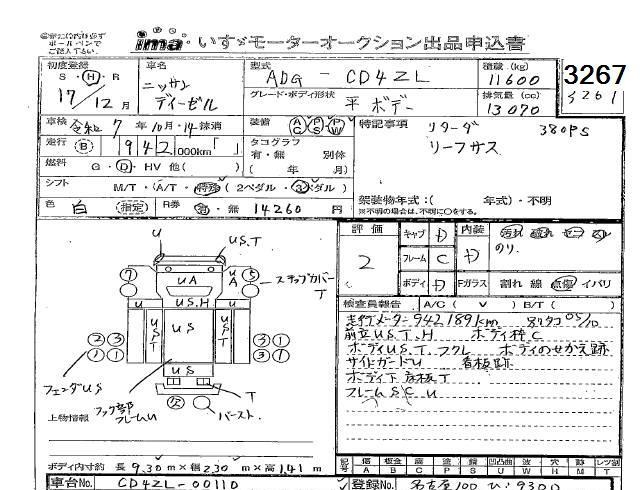 ima・いすゞモーターオークション出品申込書
初度登録 S・H・R 17/12月
車名 ニッサン ディーゼル
型式 ADG-CD4ZL
グレード・ボディ形状 平ボデー
積載(kg) 11600
排気量(cc) 13070
3267
3261
車検 令和7年10月・14抹消
装備 AC PS PW
走行 B 942,000km「 」
タコグラフ 有・無 別体 ( 年 月)
特記事項 リターダ 380PS
リーフサス
燃料 G・D・HV 他( )
シフト M/T・A/T・特殊(2ペダル・3ペダル)
架装物年式:( 年式)・不明
※不明の場合は、不明に○をする。
色 白 (指定) R券 有・無 14260円
評価 2
キャブ D
フレーム C
ボディ D
内装 D
汚れ 破れ
のり.
Fガラス 割れ 線 点傷 イバリ
検査員報告 A/C( V ) B/T( )
走行メーター942189km
前立US,T,H ボディ枠C
ボディUS.T.フクレ ボディのせかえ跡
サイドガードU 看板跡
ボディ下 床板T
フレームSC U
U
US,T
UA
UA
ステップカバーT
US,H
U
U
UST
US
UST
US
⑦
⑤
②③
①①
③②
③①
フェンダUS
フック部フレームU
T
欠
バースト
上物情報
ボディ内寸約 長9.30m×幅2.30m×高1.41m
記号 傷 A 板金 B 腐 C 塗 P 錆 S 凹 U 波 W 穴 H 点 M
車台No. CD4ZL-00110
登録No. 名古屋100 ひ:9300